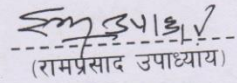 (रामप्रसाद उपाध्याय)